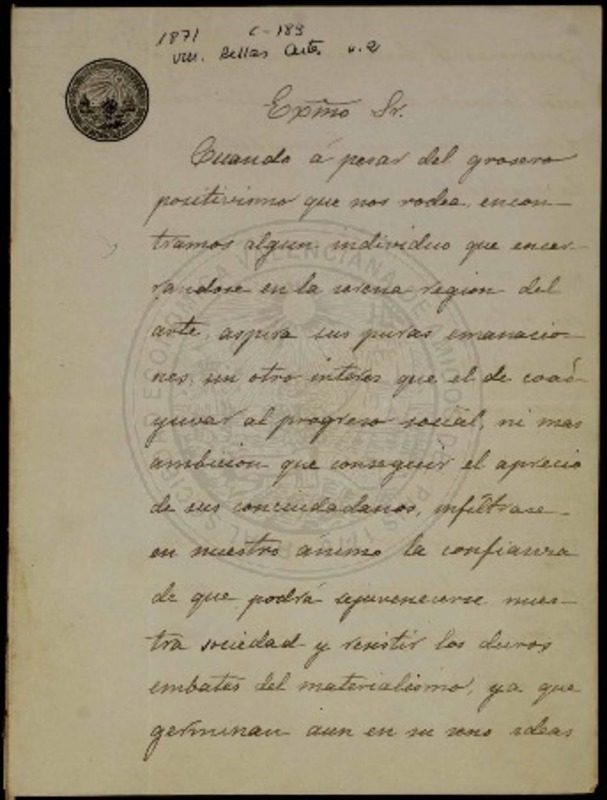 1871 C-183
VIII. Bellas Artes n. 2
Expmo Sr.
Cuando á pesar del grosero
positivismo que nos rodea, encon-
tramos algun individuo que encer-
randose en la serena region del
arte, aspira sus puras emanacio-
nes, sin otro interes que el de coad-
yuvar al progreso social, ni mas
ambicion que conseguir el aprecio
de sus conciudadanos, infíltrase
en nuestro ánimo la confianza
de que podrá rejuvenecerse nues-
tra sociedad y resistir los duros
embates del materialismo, ya que
germinan aun en su seno ideas
REAL SOCIEDAD ECONOMICA VALENCIANA DE AMIGOS DEL PAIS 1776